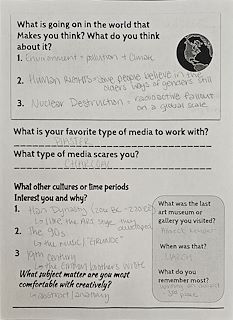 What is going on in the world that
Makes you think? What do you think
about it?
1. Environment + pollution + Climate
2. Human Rights = Some people believe in the
olders ways of genders still
3. Nuclear Destruction = radioactive fallout
on a global scale
What is your favorite type of media to work with?
PLASTER
What type of media scares you?
CHARCOAL
What other cultures or time periods
Interest you and why?
1. Han Dynasty
↳ I like the ART style they
developed
2. The 90s
↳ the music / "GRUNGE"
3. 19th century
↳ the
brothers wrote
What subject matter are you most
comfortable with creatively?
↳ abstract / anatomy
What was the last
art museum or
gallery you visited?
When was that?
MARCH
What do you
remember most?